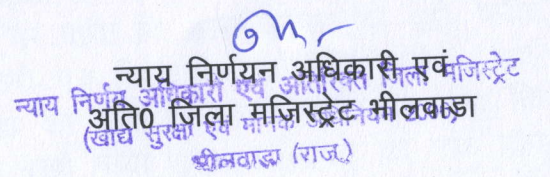 न्याय निर्णयन अधिकारी एवं
अति0 जिला मजिस्ट्रेट भीलवाडा
न्याय निर्णयन अधिकारी एवं अतिरिक्त जिला मजिस्ट्रेट
(खाद्य सुरक्षा एवं मानक
भीलवाडा (राज.)